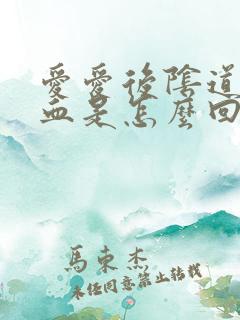 愛愛後陰道
血是怎麼回
馬東杰
未經同意禁止轉載